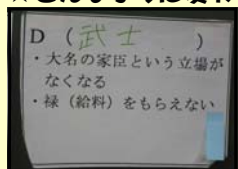 D（武士）
・大名の家臣という立場が
なくなる
・禄（給料）をもらえない